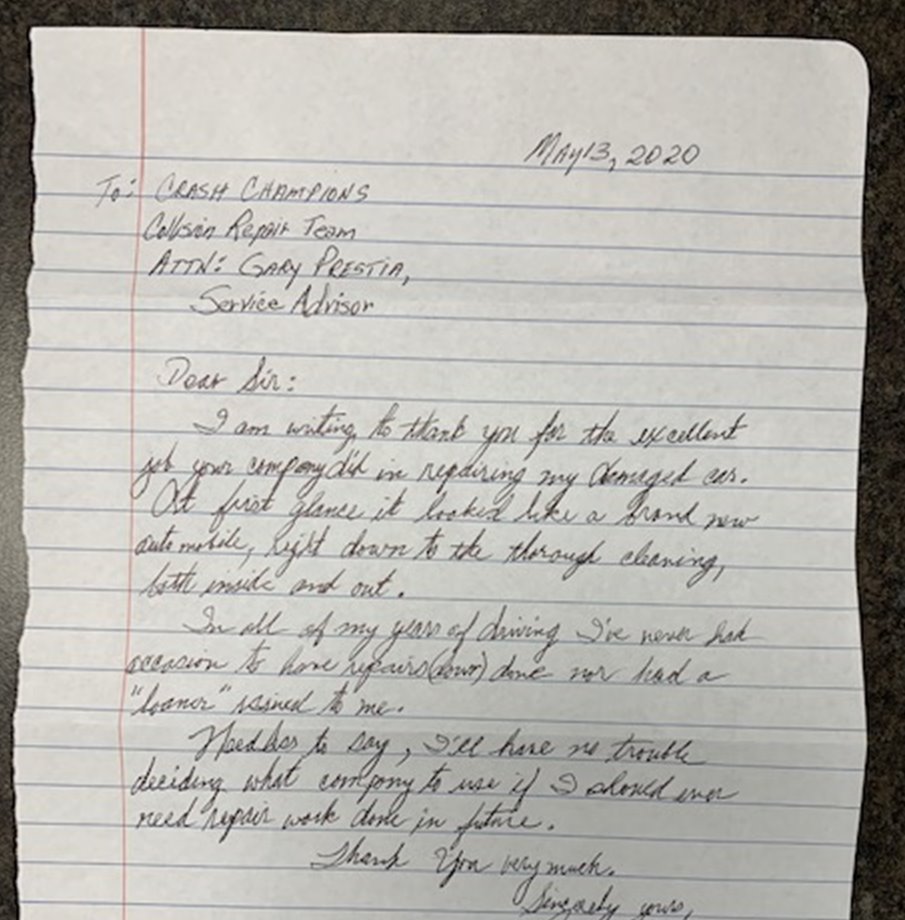 May 13, 2020
To: CRASH CHAMPIONS
Collision Repair Team
ATTN: GARY PRESTIA,
Service Advisor
Dear Sir:
I am writing to thank you for the excellent
job your company did in repairing my damaged car.
At first glance it looked like a brand new
automobile, right down to the thorough cleaning,
both inside and out.
In all of my years of driving I've never had
occasion to have repairs done nor had a
"loaner" issued to me.
Needless to say, I'll have no trouble
deciding what company to use if I should ever
need repair work done in future.
Thank You very much.
Sincerely yours,